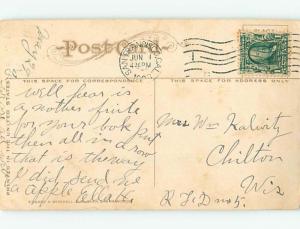 Postcard
THIS SPACE FOR CORRESPONDENCE
THIS SPACE FOR ADDRESS ONLY
SAN
JUN 1
4 PM
PRINTED IN THE UNITED STATES
Well hear is
a nother finte
for your book put
them all in a row
that is the way
I did send me
a apple Ella K
Mrs Wm Kalwitz
Chilton
Wis
R F D no 5.